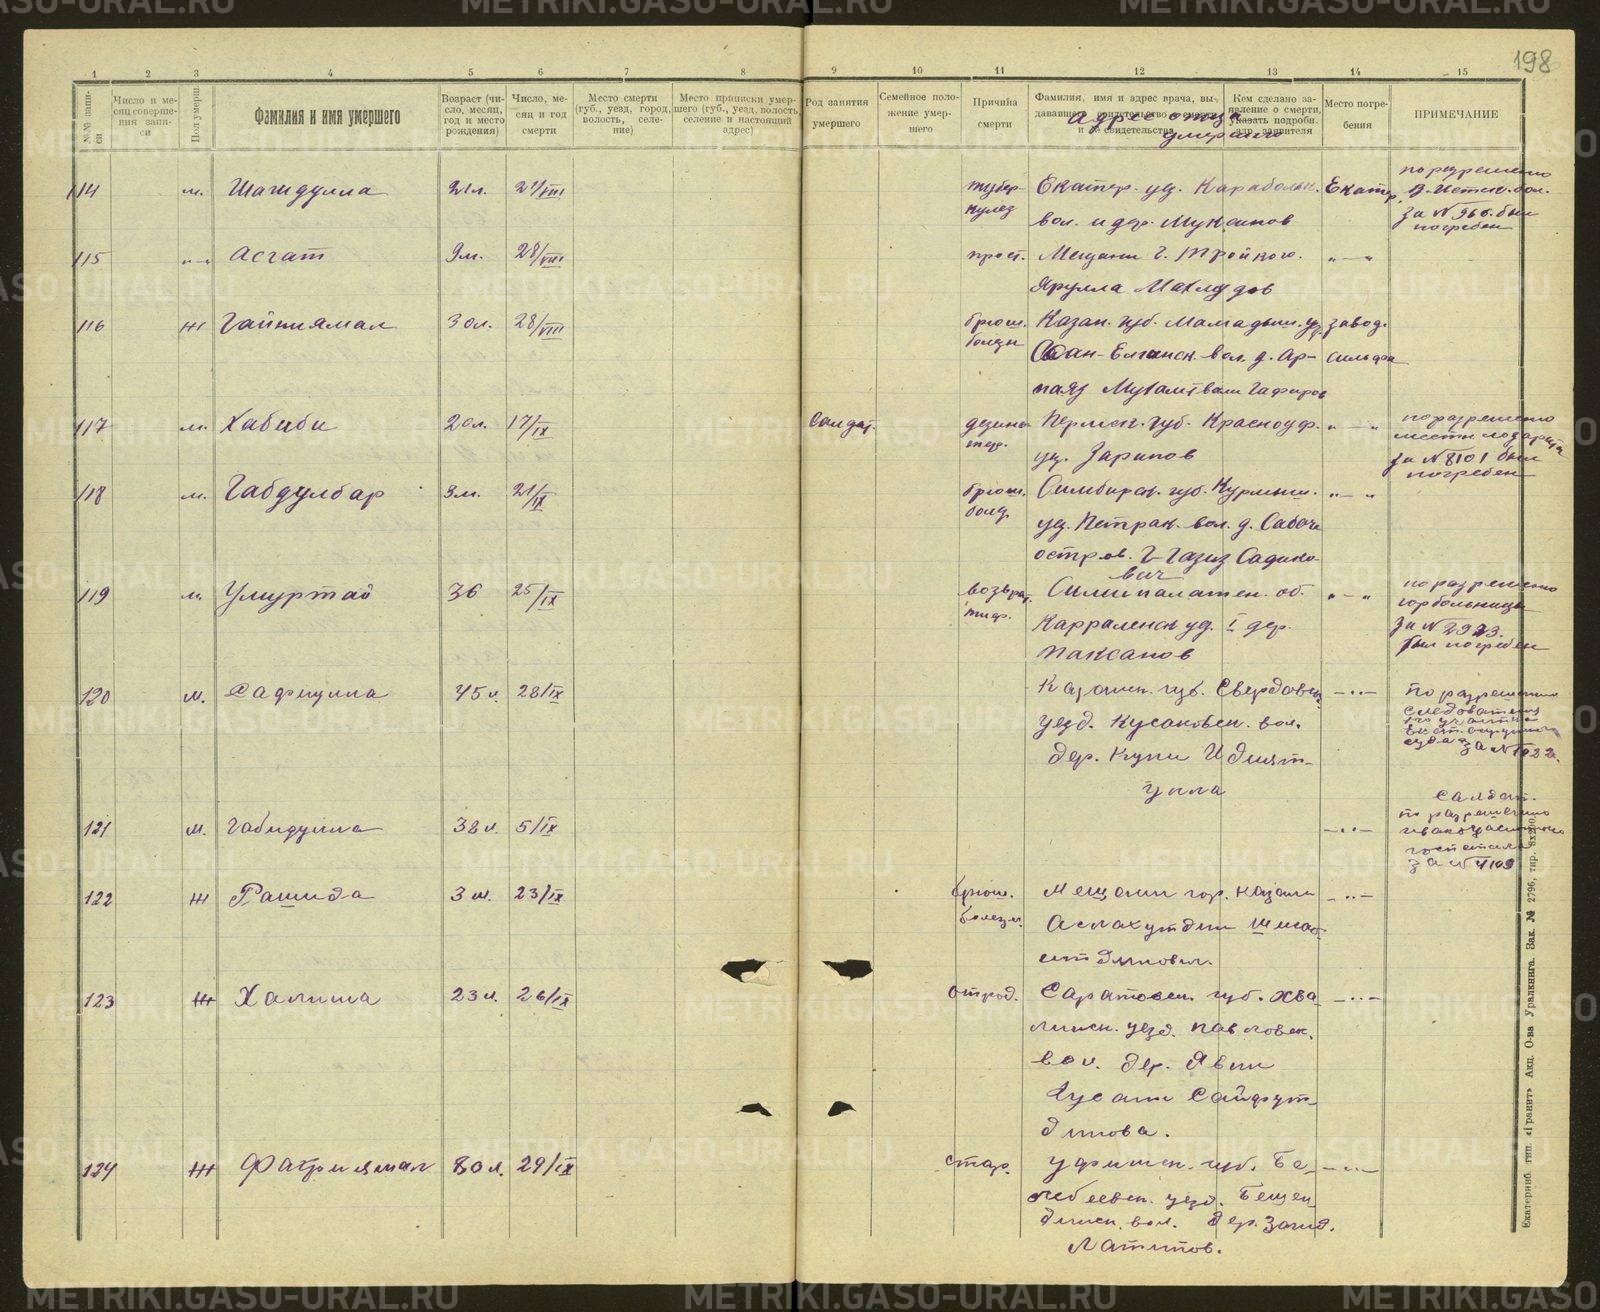 198
1 2 3 4 5 6 7 8 9 10 11 12 13 14 15
№№ записи
Число и месяц совершения записи
Пол умерш.
Фамилия и имя умершего
Возраст (число, месяц, год и место рождения)
Число, месяц и год смерти
Место смерти (губ., уезд, город, волость, селение)
Место приписки умершего (губ., уезд, волость, селение и настоящий адрес)
Род занятия умершего
Семейное положение умершего
Причина смерти
Фамилия, имя и адрес врача, выдавшего свидетельство
и № свидетельства
адрес отца
умершого
Кем сделано заявление о смерти, указать подробн. адр. заявителя
Место погребения
ПРИМЕЧАНИЕ
114 м. Шагидулла 21л. 27/VIII тубер- Екатер. уз. Карабольк. Екатер.
кулез вол. и дер. Муксинов
по разрешению
за № 966. был
погребен
115 „—„ Асгат 9м. 28/VIII прост. Мещани г. Тройкого. „—„
Ярулла Махмудов
116 Ж Гайниямал 30л. 28/VIII брюш. Казан. губ. Мамадыш. уз. завод.
болезн вол. д. Ар-
паяз Мухаметвали Гафиров
117 м. Хабиби 20л. 17/IX Салдат. Пермск. губ. Красноуф. „—„
тер. уз. Зарипов
по разрешению
за № 8101 был
погребен
118 м. Габдулбар 9м. 21/IX брюш. Симбирск. губ. Курмыш. „—„
болез. уз. Петрак. вол. д. Сабач
остров. Газиз Садико-
вич
119 м. Умуртай 36 25/IX возвра. Симипалатен. об. „—„
тиф. Карраленск уз. I дер.
Паксанов
по разрешению
горбольницы
за № 2923.
был погребен
120 м. Сафиулла 45 л. 28/IX Казанск. губ. Свердовск. —..—
уезд. Кусаковск. вол.
дер. Купи Идият-
улла
по разрешению
следователя
1го участка
суда за № 1022.
121 м. Габидулла 38 л. 5/IX —..—
Салдат.
по разрешению
госпиталя
за № 4109
122 Ж Рашида 3 м. 23/IX брюш. Мещани гор. Казани —..—
болезн. Аслахутдин Шигаб-
утдинович.
123 Ж Халима 23 л. 26/IX отрод. Саратовск. губ. Хва- —..—
лынск. уезд. Павловск.
вол. дер. Явли
Хусаин Сайфут-
динова.
124 Ж Фахриямал 80 л. 29/IX стар. Уфимск. губ. Бе- —..—
лебеевск. уезд. Бещен
динск. вол. дер. Заит.
Латипов.
Екатеринб тип. «Гранит» Акц. О-ва Уралкнига. Зак. № 2796, тир. 8х200.
METRIKI.GASO-URAL.RU